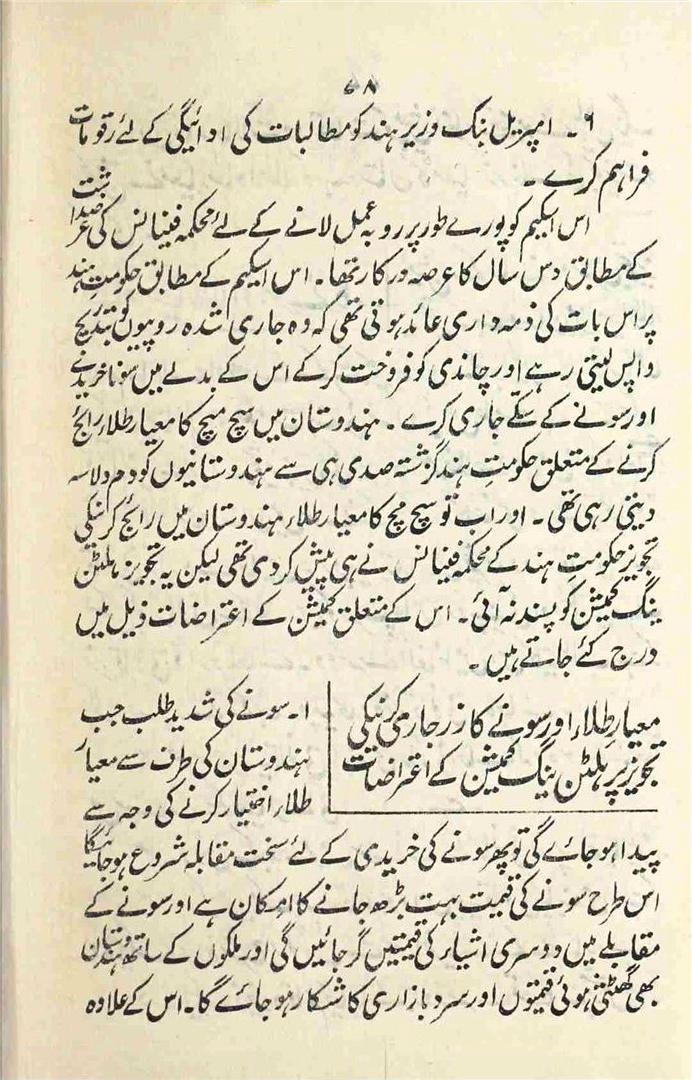 ۶۸
۶۔ امپریل بنک وزیر ہند کو مطالبات کی ادائیگی کے لئے رقومات
فراہم کرے۔
اس اسکیم کو پورے طور پر روبہ عمل لانے کے لئے محکمہ فینانس کی عرضداشت
کے مطابق دس سال کا عرصہ درکار تھا۔ اس اسکیم کے مطابق حکومتِ ہند
پر اس بات کی ذمہ داری عائد ہوتی تھی کہ وہ جاری شدہ روپیوں کو بتدریج
واپس لیتی رہے اور چاندی کو فروخت کرکے اس کے بدلے میں سونا خریدے
اور سونے کے سکّے جاری کرے۔ ہندوستان میں سچ مچ کا معیار طلاء رائج
کرنے کے متعلق حکومتِ ہند گزشتہ صدی ہی سے ہندوستانیوں کو دم دلاسہ
دیتی رہی تھی۔ اور اب تو سچ مچ کا معیار طلاء ہندوستان میں رائج کرنیکی
تجویز حکومتِ ہند کے محکمہ فینانس نے ہی پیش کر دی تھی لیکن یہ تجویز ہلٹن
ینگ کمیشن کو پسند نہ آئی۔ اس کے متعلق کمیشن کے اعتراضات ذیل میں
درج کئے جاتے ہیں۔
معیارِ طلاء اور سونے کا زر جاری کرنیکی
تجویز پر ہلٹن ینگ کمیشن کے اعتراضات
۱۔ سونے کی شدید طلب جب
ہندوستان کی طرف سے معیار
طلاء اختیار کرنے کی وجہ سے
پیدا ہو جائے گی تو پھر سونے کی خریدی کے لئے سخت مقابلہ شروع ہو جائیگا
اس طرح سونے کی قیمت بہت بڑھ جانے کا امکان ہے اور سونے کے
مقابلے میں دوسری اشیاء کی قیمتیں گر جائیں گی اور ملکوں کے ساتھ ہندوستان
بھی گھٹتی ہوئی قیمتوں اور سرد بازاری کا شکار ہو جائے گا۔ اس کے علاوہ